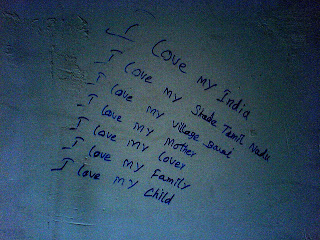 I Love my India
I Love my State Tamil Nadu
I Love my village
I Love my Mother
I Love my Lover
I Love my Family
I Love my Child